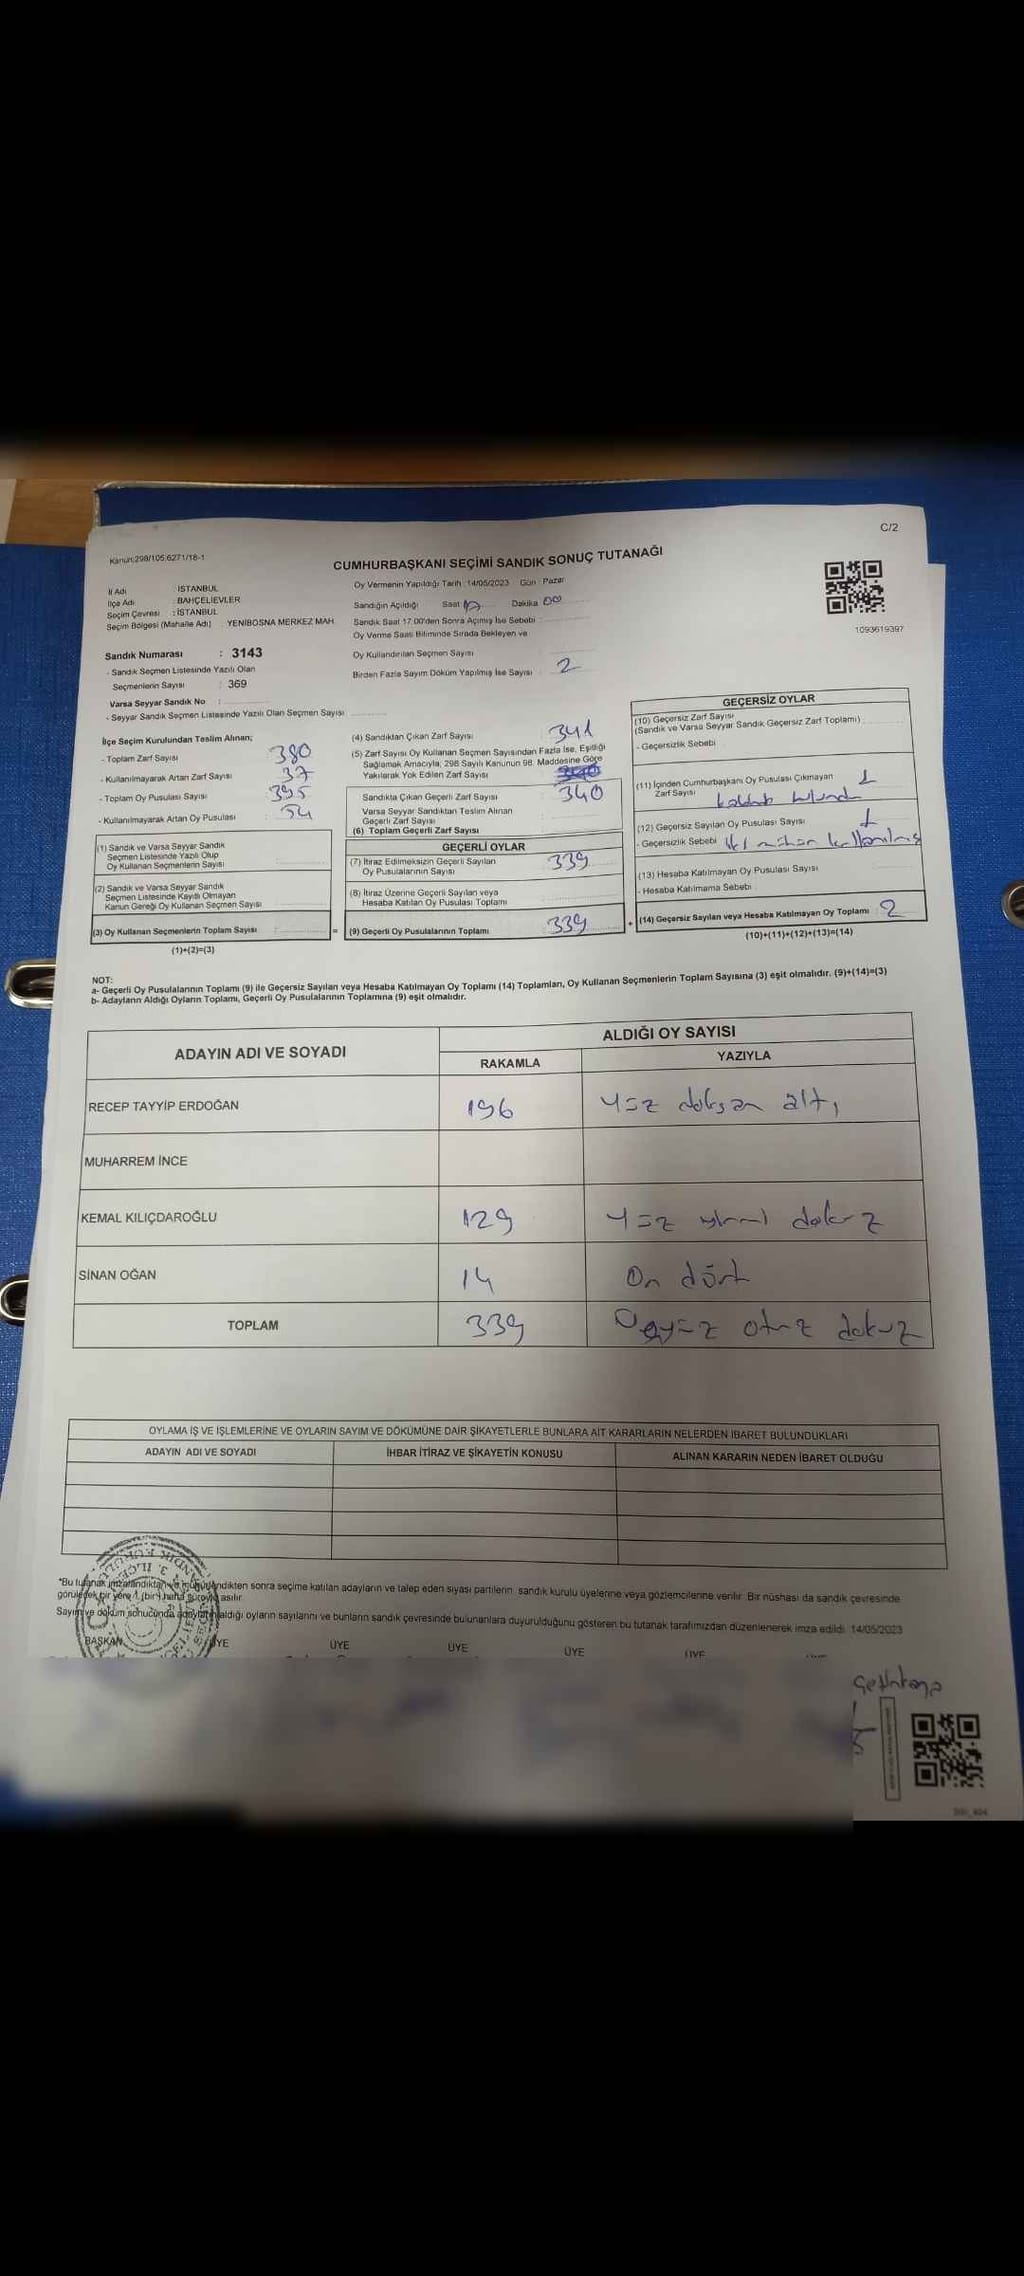 C/2
Kanun:298/105.6271/18-1
CUMHURBAŞKANI SEÇİMİ SANDIK SONUÇ TUTANAĞI
İl Adı : İSTANBUL
İlçe Adı : BAHÇELİEVLER
Seçim Çevresi : İSTANBUL
Seçim Bölgesi (Mahalle Adı) : YENİBOSNA MERKEZ MAH.
Oy Vermenin Yapıldığı Tarih : 14/05/2023 Gün : Pazar
Sandığın Açıldığı Saat Dakika 00
Sandık Saat 17.00'den Sonra Açılmış İse Sebebi :
Oy Verme Saati Bitiminde Sırada Bekleyen ve
Oy Kullandırılan Seçmen Sayısı
Birden Fazla Sayım Döküm Yapılmış İse Sayısı : 2
1093619397
Sandık Numarası : 3143
- Sandık Seçmen Listesinde Yazılı Olan
Seçmenlerin Sayısı : 369
Varsa Seyyar Sandık No :
- Seyyar Sandık Seçmen Listesinde Yazılı Olan Seçmen Sayısı
İlçe Seçim Kurulundan Teslim Alınan;
- Toplam Zarf Sayısı : 380
- Kullanılmayarak Artan Zarf Sayısı : 37
- Toplam Oy Pusulası Sayısı : 395
- Kullanılmayarak Artan Oy Pusulası : 54
(1) Sandık ve Varsa Seyyar Sandık
Seçmen Listesinde Yazılı Olup
Oy Kullanan Seçmenlerin Sayısı
(2) Sandık ve Varsa Seyyar Sandık
Seçmen Listesinde Kayıtlı Olmayan
Kanun Gereği Oy Kullanan Seçmen Sayısı
(3) Oy Kullanan Seçmenlerin Toplam Sayısı :
(1)+(2)=(3)
(4) Sandıktan Çıkan Zarf Sayısı : 341
(5) Zarf Sayısı Oy Kullanan Seçmen Sayısından Fazla İse, Eşitliği
Sağlamak Amacıyla; 298 Sayılı Kanunun 98. Maddesine Göre
Yakılarak Yok Edilen Zarf Sayısı
Sandıkta Çıkan Geçerli Zarf Sayısı : 340
Varsa Seyyar Sandıktan Teslim Alınan
Geçerli Zarf Sayısı
(6) Toplam Geçerli Zarf Sayısı
GEÇERLİ OYLAR
(7) İtiraz Edilmeksizin Geçerli Sayılan
Oy Pusulalarının Sayısı : 339
(8) İtiraz Üzerine Geçerli Sayılan veya
Hesaba Katılan Oy Pusulası Toplamı
(9) Geçerli Oy Pusulalarının Toplamı : 339
GEÇERSİZ OYLAR
(10) Geçersiz Zarf Sayısı
(Sandık ve Varsa Seyyar Sandık Geçersiz Zarf Toplamı)
- Geçersizlik Sebebi
(11) İçinden Cumhurbaşkanı Oy Pusulası Çıkmayan
Zarf Sayısı 1
(12) Geçersiz Sayılan Oy Pusulası Sayısı 1
- Geçersizlik Sebebi iki mühür kullanılmış
(13) Hesaba Katılmayan Oy Pusulası Sayısı
- Hesaba Katılmama Sebebi
(14) Geçersiz Sayılan veya Hesaba Katılmayan Oy Toplamı : 2
(10)+(11)+(12)+(13)=(14)
NOT:
a- Geçerli Oy Pusulalarının Toplamı (9) ile Geçersiz Sayılan veya Hesaba Katılmayan Oy Toplamı (14) Toplamları, Oy Kullanan Seçmenlerin Toplam Sayısına (3) eşit olmalıdır. (9)+(14)=(3)
b- Adayların Aldığı Oyların Toplamı, Geçerli Oy Pusulalarının Toplamına (9) eşit olmalıdır.
ADAYIN ADI VE SOYADI
ALDIĞI OY SAYISI
RAKAMLA YAZIYLA
RECEP TAYYİP ERDOĞAN 196 Yüz doksan altı
MUHARREM İNCE
KEMAL KILIÇDAROĞLU 129 Yüz yirmi dokuz
SİNAN OĞAN 14 On dört
TOPLAM 339 Üçyüz otuz dokuz
OYLAMA İŞ VE İŞLEMLERİNE VE OYLARIN SAYIM VE DÖKÜMÜNE DAİR ŞİKAYETLERLE BUNLARA AİT KARARLARIN NELERDEN İBARET BULUNDUKLARI
ADAYIN ADI VE SOYADI İHBAR İTİRAZ VE ŞİKAYETİN KONUSU ALINAN KARARIN NEDEN İBARET OLDUĞU
*Bu tutanak imzalandıktan ve mühürlendikten sonra seçime katılan adayların ve talep eden siyasi partilerin, sandık kurulu üyelerine veya gözlemcilerine verilir. Bir nüshası da sandık çevresinde
görülecek bir yere 1 (bir) hafta süreyle asılır.
Sayım ve döküm sonucunda adayların aldığı oyların sayılarını ve bunların sandık çevresinde bulunanlara duyurulduğunu gösteren bu tutanak tarafımızdan düzenlenerek imza edildi. 14/05/2023
BAŞKAN ÜYE ÜYE ÜYE ÜYE ÜYE